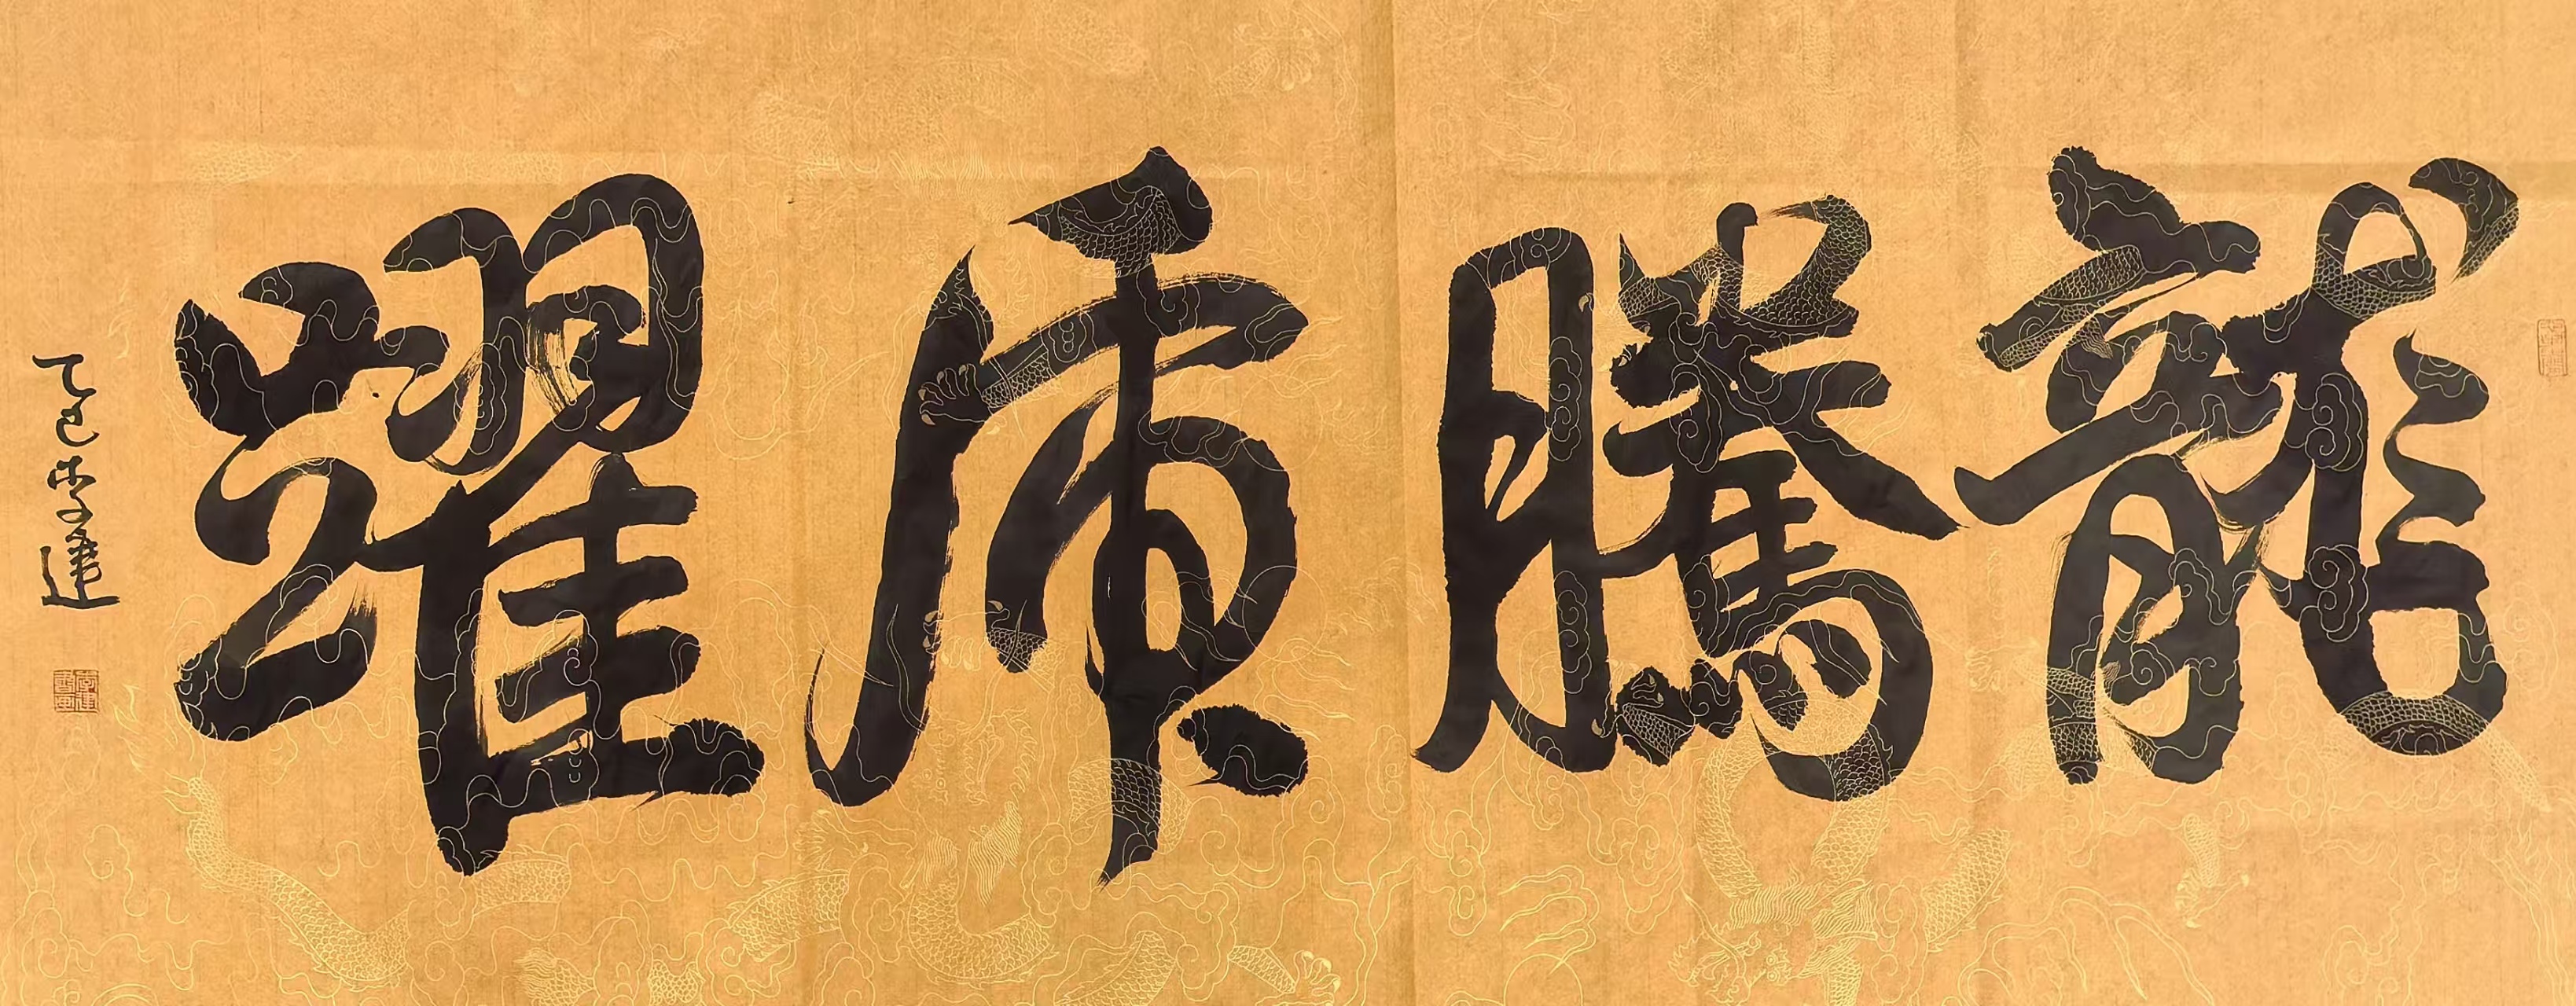 龍騰虎躍
乙巳李建